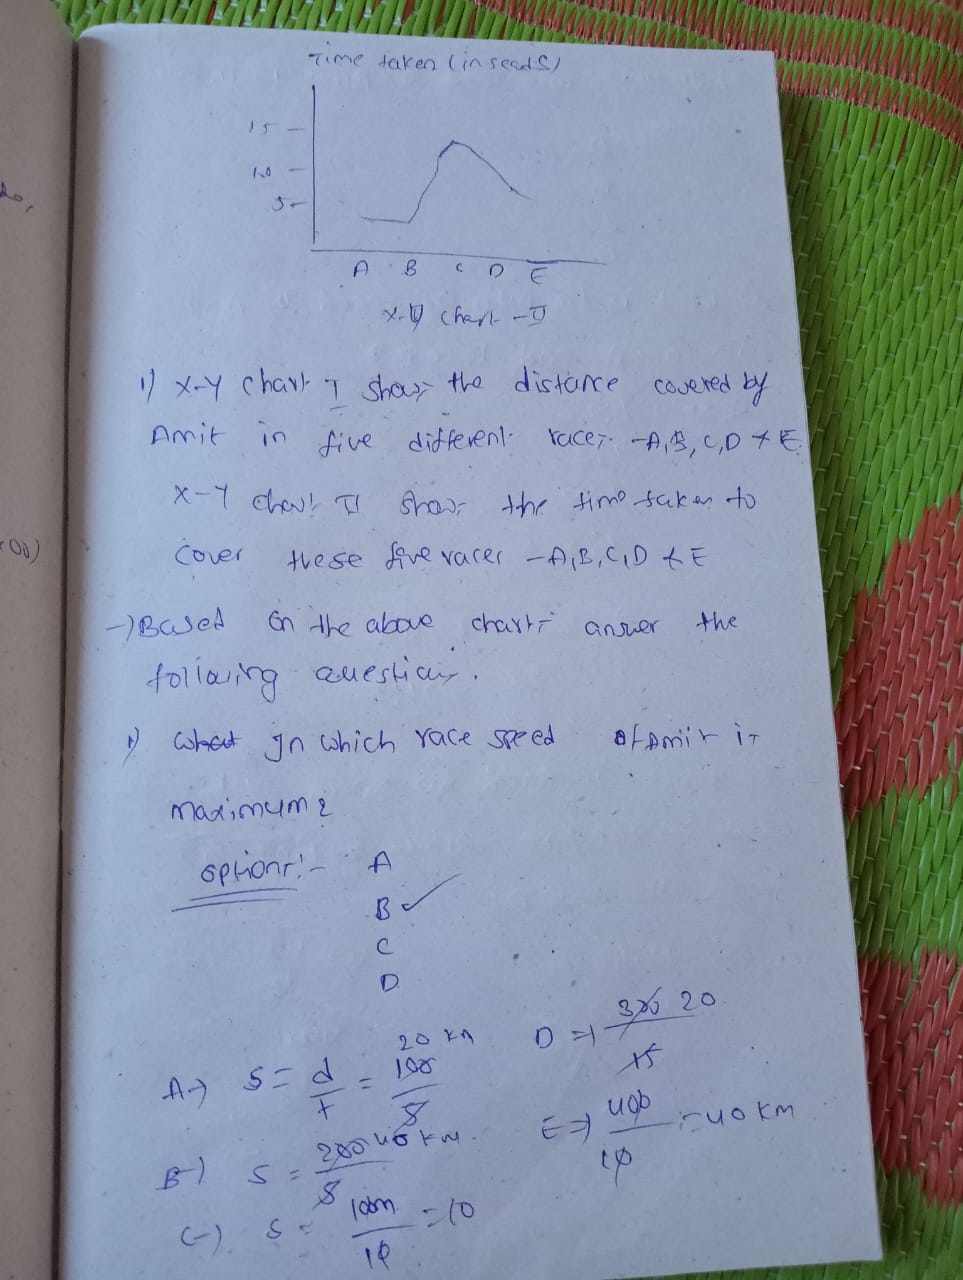 Time taken (in seads)
15
10
5
A B C D E
x-y chart - II
1) x-y chart I shows the distance covered by
Amit in five different races -A,B,C,D & E
x-y chart II shows the time taken to
cover these five races -A,B,C,D & E
→Based on the above charts answer the
following questions.
1) what In which race speed of Amit is
maximum?
options:- A
B ✓
C
D
A→ S = d/t = 100/5 20 km
B→) S = 200/5 40 km.
C→). S = 100m/10 = 10
D ⇒ 300/15 20
E ⇒ 400/10 = 40 km